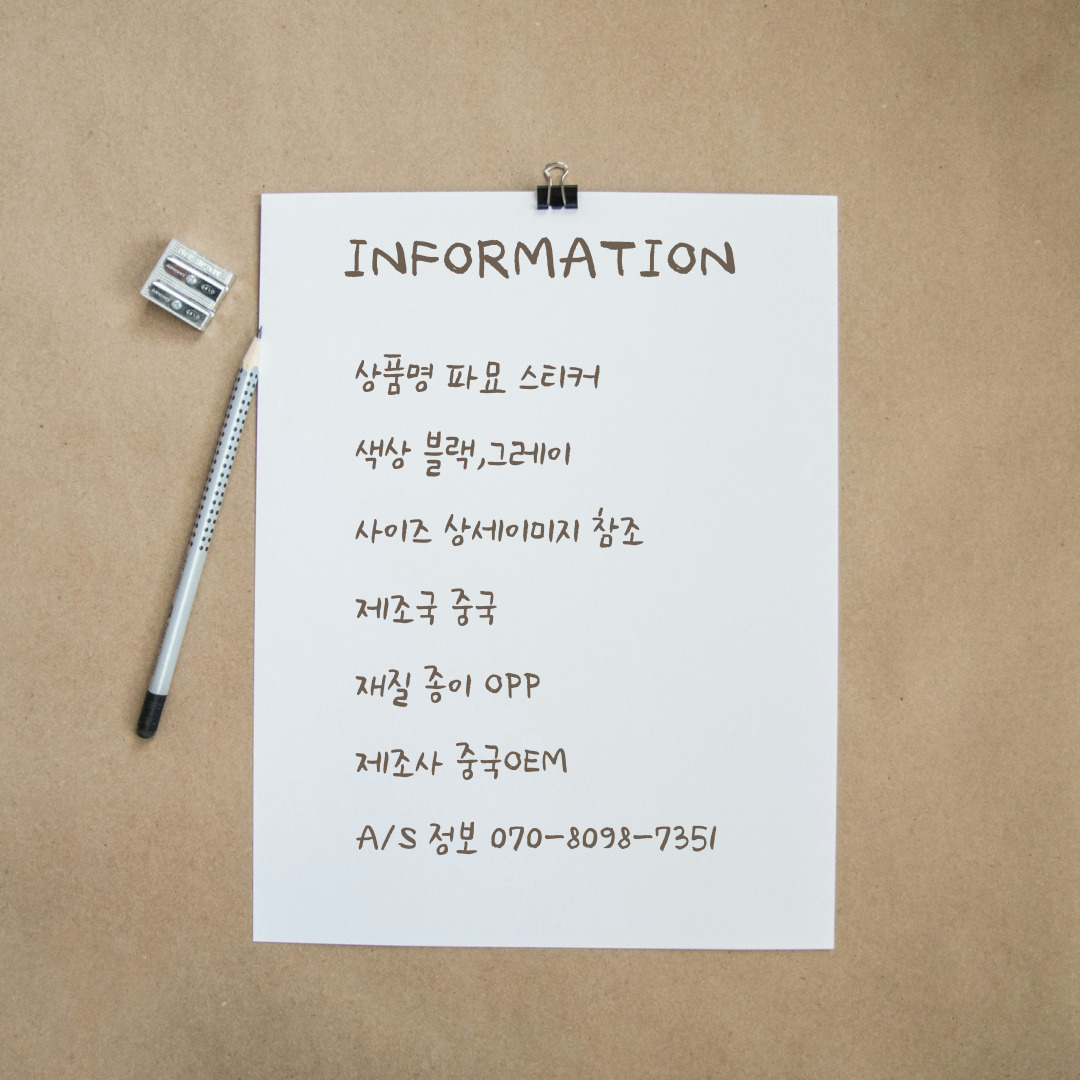 INFORMATION
상품명 파묘 스티커
색상 블랙,그레이
사이즈 상세이미지 참조
제조국 중국
재질 종이 OPP
제조사 중국OEM
A/S 정보 070-8098-7351